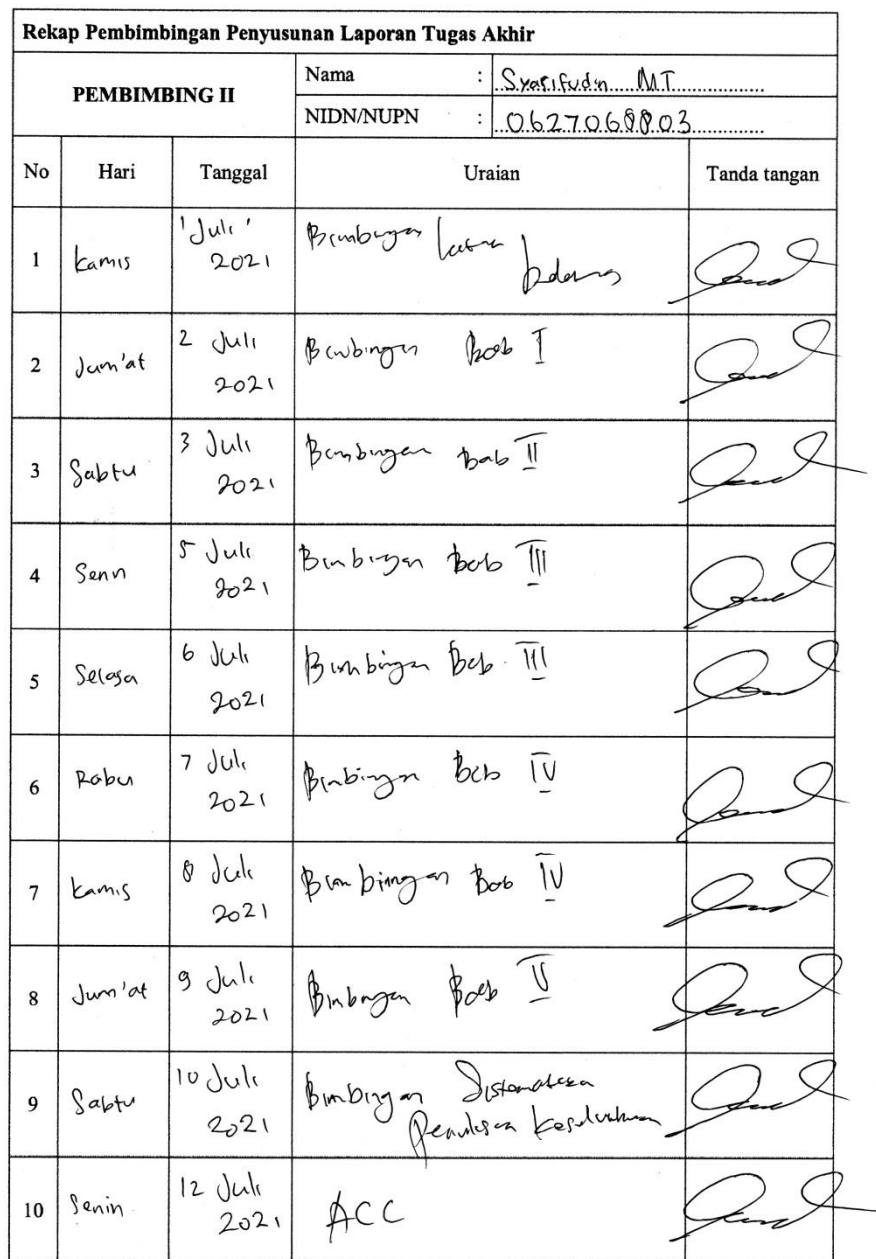 Rekap Pembimbingan Penyusunan Laporan Tugas Akhir
PEMBIMBING II
Nama : Syarifudin MT
NIDN/NUPN : 0627068803
No Hari Tanggal Uraian Tanda tangan
1 Kamis 1 Juli 2021 Bimbingan latar belakang
2 Jum'at 2 Juli 2021 Bimbingan Bab I
3 Sabtu 3 Juli 2021 Bimbingan Bab II
4 Senin 5 Juli 2021 Bimbingan Bab III
5 Selasa 6 Juli 2021 Bimbingan Bab III
6 Rabu 7 Juli 2021 Bimbingan Bab IV
7 Kamis 8 Juli 2021 Bimbingan Bab IV
8 Jum'at 9 Juli 2021 Bimbingan Bab V
9 Sabtu 10 Juli 2021 Bimbingan Sistematika
Penulisan Keseluruhan
10 Senin 12 Juli 2021 ACC